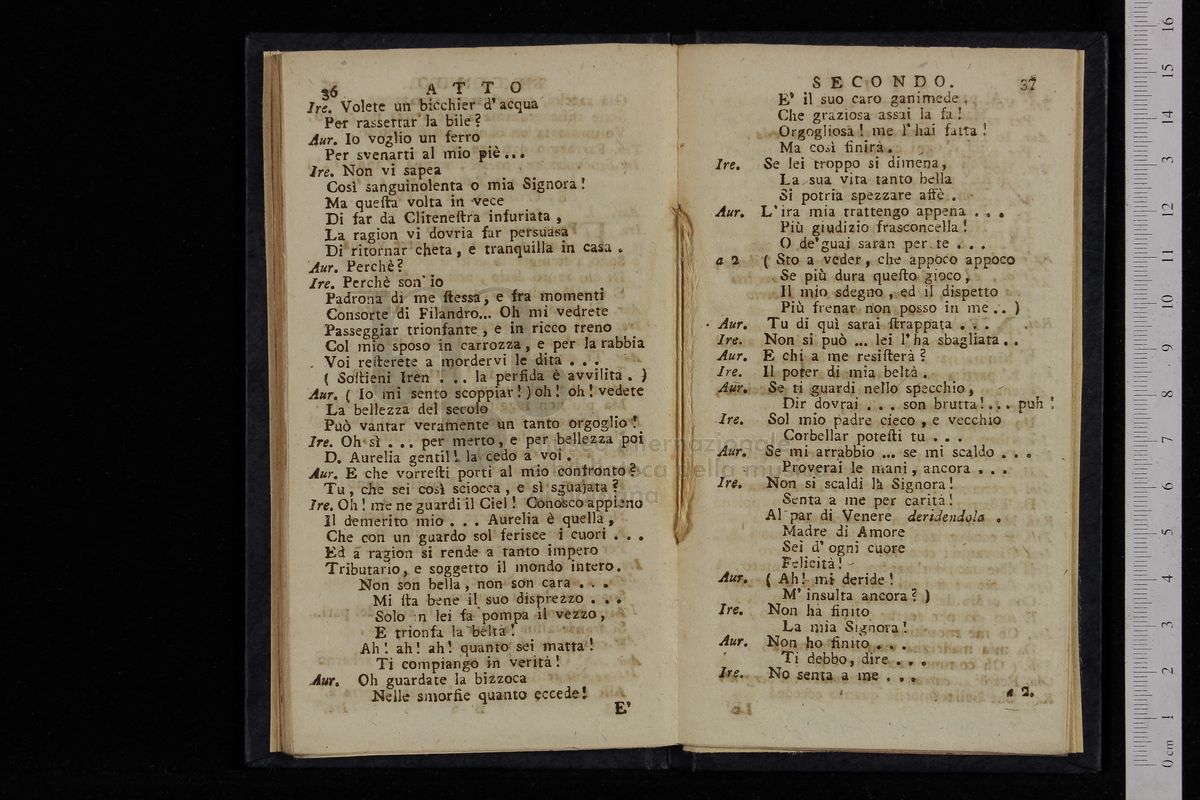 36 ATTO
Ire. Volete un bicchier d'acqua
Per rassettar la bile?
Aur. Io voglio un ferro
Per svenarti al mio piè...
Ire. Non vi sapea
Così sanguinolenta o mia Signora!
Ma questa volta in vece
Di far da Clitenestra infuriata,
La ragion vi dovria far persuasa
Di ritornar cheta, e tranquilla in casa.
Aur. Perchè?
Ire. Perchè son' io
Padrona di me stessa, e fra momenti
Consorte di Filandro... Oh mi vedrete
Passeggiar trionfante, e in ricco treno
Col mio sposo in carrozza, e per la rabbia
Voi resterete a mordervi le dita...
( Sostieni Iren... la perfida è avvilita. )
Aur. ( Io mi sento scoppiar! ) oh! oh! vedete
La bellezza del secolo
Può vantar veramente un tanto orgoglio!
Ire. Oh sì... per merto, e per bellezza poi
D. Aurelia gentil! la cedo a voi.
Aur. E che vorresti porti al mio confronto?
Tu, che sei così sciocca, e sì sguajata?
Ire. Oh! me ne guardi il Ciel! Conosco appieno
Il demerito mio... Aurelia è quella,
Che con un guardo sol ferisce i cuori...
Ed a ragion si rende a tanto impero
Tributario, e soggetto il mondo intero.
Non son bella, non son cara...
Mi sta bene il suo disprezzo...
Solo in lei fa pompa il vezzo,
E trionfa la beltà!
Ah! ah! ah! quanto sei matta!
Ti compiango in verità!
Aur. Oh guardate la bizzoca
Nelle smorfie quanto eccede!
E'
SECONDO. 37
E' il suo caro ganimede,
Che graziosa assai la fa!
Orgogliosa! me l'hai fatta!
Ma così finirà.
Ire. Se lei troppo si dimena,
La sua vita tanto bella
Si potria spezzare affè.
Aur. L'ira mia trattengo appena...
Più giudizio frasconcella!
O de'guai saran per te...
a 2 ( Sto a veder, che appoco appoco
Se più dura questo gioco,
Il mio sdegno, ed il dispetto
Più frenar non posso in me.. )
Aur. Tu di quì sarai strappata...
Ire. Non si può... lei l'ha sbagliata..
Aur. E chi a me resisterà?
Ire. Il poter di mia beltà.
Aur. Se ti guardi nello specchio,
Dir dovrai... son brutta!... puh!
Ire. Sol mio padre cieco, e vecchio
Corbellar potesti tu...
Aur. Se mi arrabbio... se mi scaldo...
Proverai le mani, ancora...
Ire. Non si scaldi là Signora!
Senta a me per carità!
Al par di Venere deridendola.
Madre di Amore
Sei d'ogni cuore
Felicità!
Aur. ( Ah! mi deride!
M'insulta ancora? )
Ire. Non ha finito
La mia Signora!
Aur. Non ho finito...
Ti debbo, dire...
Ire. No senta a me...
a 2.